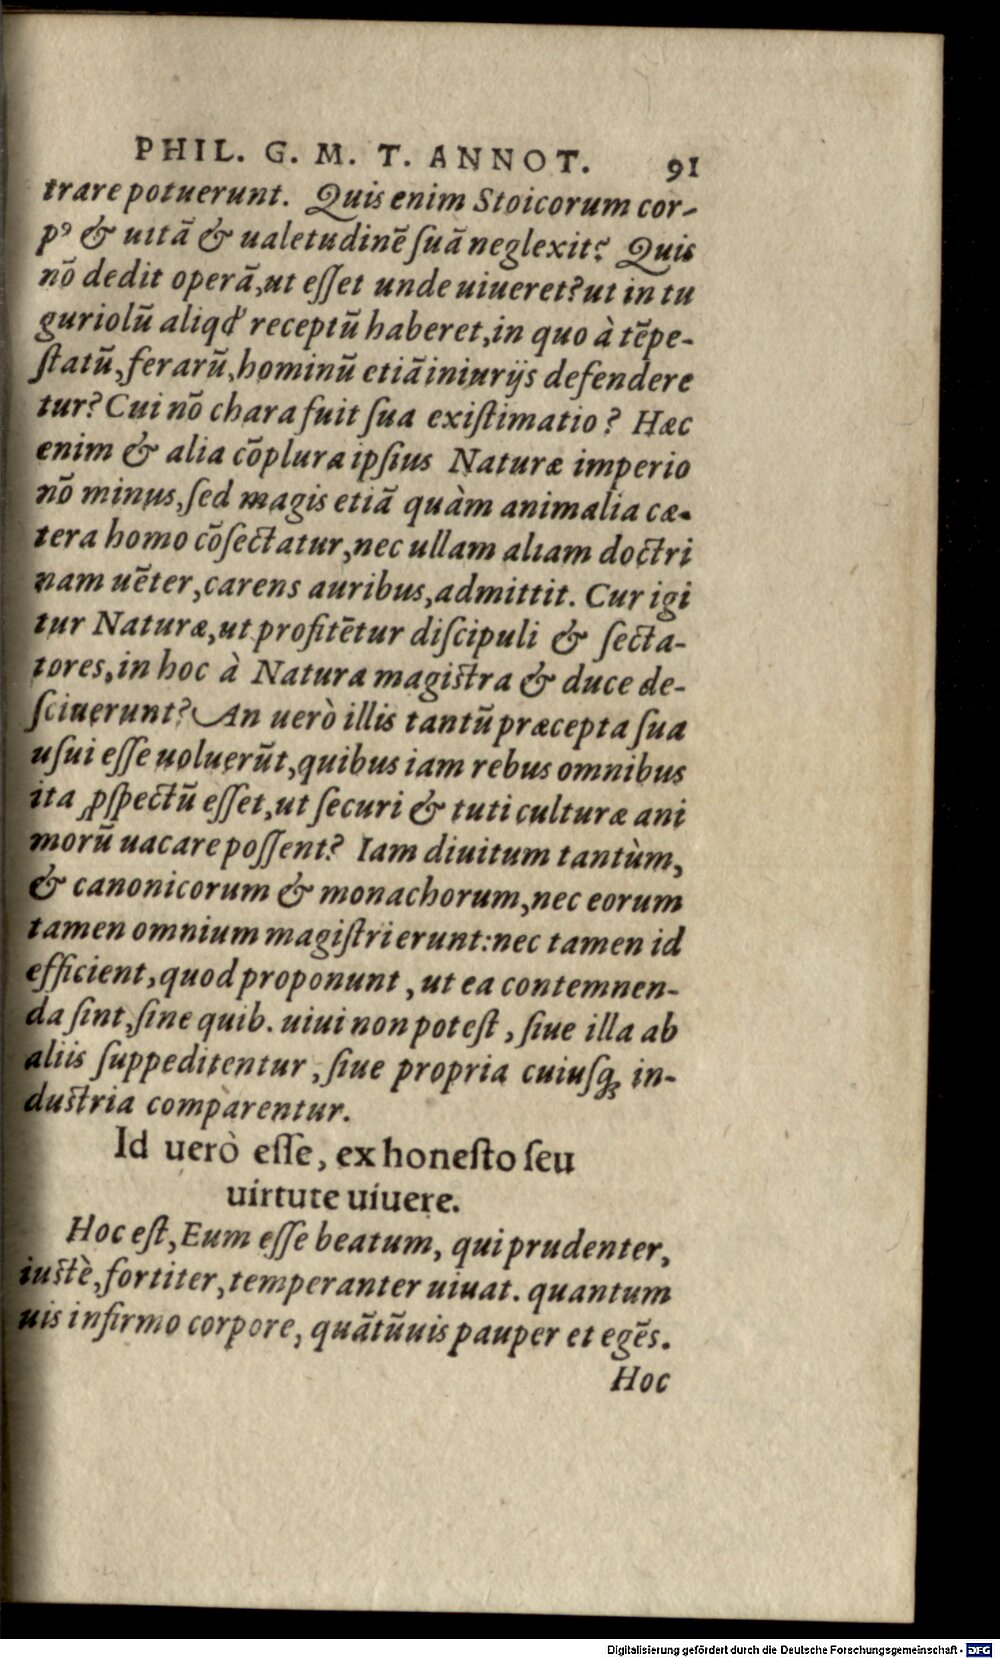 PHIL. G. M. T. ANNOT. 91
trare potuerunt. Quis enim Stoicorum cor-
pꝰ & uitã & ualetudinẽ ſuã neglexit? Quis
nõ dedit operã, ut eſſet unde uiueret? ut in tu
guriolũ aliqd' receptũ haberet, in quo à tẽpe-
ſtatũ, ferarũ, hominũ etiã iniurijs defendere
tur? Cui nõ chara fuit ſua exiſtimatio? Hæc
enim & alia cõplura ipſius Naturæ imperio
nõ minus, ſed magis etiã quàm animalia cæ-
tera homo cõſectatur, nec ullam aliam doctri
nam uẽter, carens auribus, admittit. Cur igi
tur Naturæ, ut profitẽtur diſcipuli & ſecta-
tores, in hoc à Natura magiſtra & duce de-
ſciuerunt? An uerò illis tantũ præcepta ſua
uſui eſſe uoluerũt, quibus iam rebus omnibus
ita ꝓſpectũ eſſet, ut ſecuri & tuti culturæ ani
morũ uacare poſſent? Iam diuitum tantùm,
& canonicorum & monachorum, nec eorum
tamen omnium magiſtri erunt: nec tamen id
efficient, quod proponunt, ut ea contemnen-
da ſint, ſine quib. uiui non poteſt, ſiue illa ab
aliis ſuppeditentur, ſiue propria cuiuſq; in-
duſtria comparentur.
Id uerò eſſe, ex honeſto ſeu
uirtute uiuere.
Hoc eſt, Eum eſſe beatum, qui prudenter,
iuſtè, fortiter, temperanter uiuat. quantum
uis infirmo corpore, quãtũuis pauper et egẽs.
Hoc
Digitalisierung gefördert durch die Deutsche Forschungsgemeinschaft - DFG